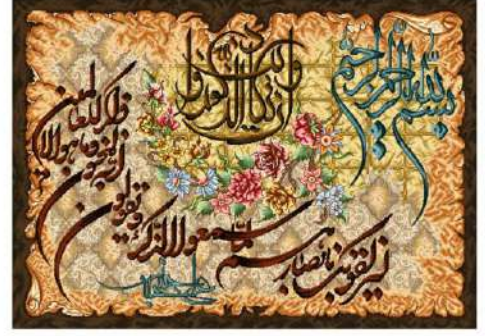 بسم الله الرحمن الرحیم
وان یکاد الذین کفروا
لیزلقونک بابصارهم لما سمعوا الذکر و یقولون
انه لمجنون و ما هو الا
ذکر للعالمین